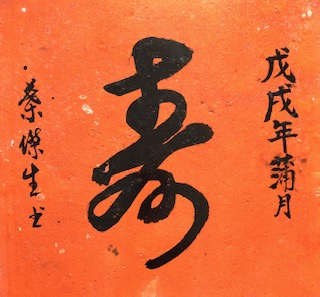 戊戌年蒲月
寿
蔡傑生书